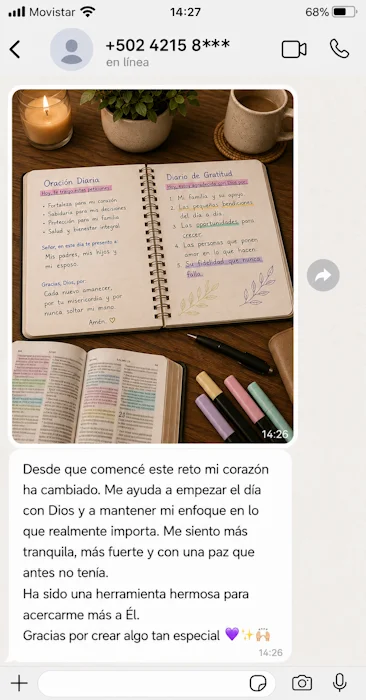 Movistar
14:27
68%
+502 4215 8***
en línea
Oración Diaria
Hoy, te traigo estas peticiones:
• Fortaleza para mi corazón
• Sabiduría para mis decisiones
• Protección para mi familia
• Salud y bienestar integral
Señor, en este día te presento a:
Mis padres, mis hijos y
mi esposo.
Gracias, Dios, por:
Cada nuevo amanecer,
por tu misericordia y por
nunca soltar mi mano.
Amén. ♡
Diario de Gratitud
1. Mi familia y su apoyo.
2. Las pequeñas bendiciones
del día a día.
3. Las oportunidades para
crecer.
4. Las personas que ponen
amor en lo que hacen.
5. Su fidelidad que nunca
falla.
14:26
Desde que comencé este reto mi corazón
ha cambiado. Me ayuda a empezar el día
con Dios y a mantener mi enfoque en lo
que realmente importa. Me siento más
tranquila, más fuerte y con una paz que
antes no tenía.
Ha sido una herramienta hermosa para
acercarme más a Él.
Gracias por crear algo tan especial 💜✨🙌🏻
14:26